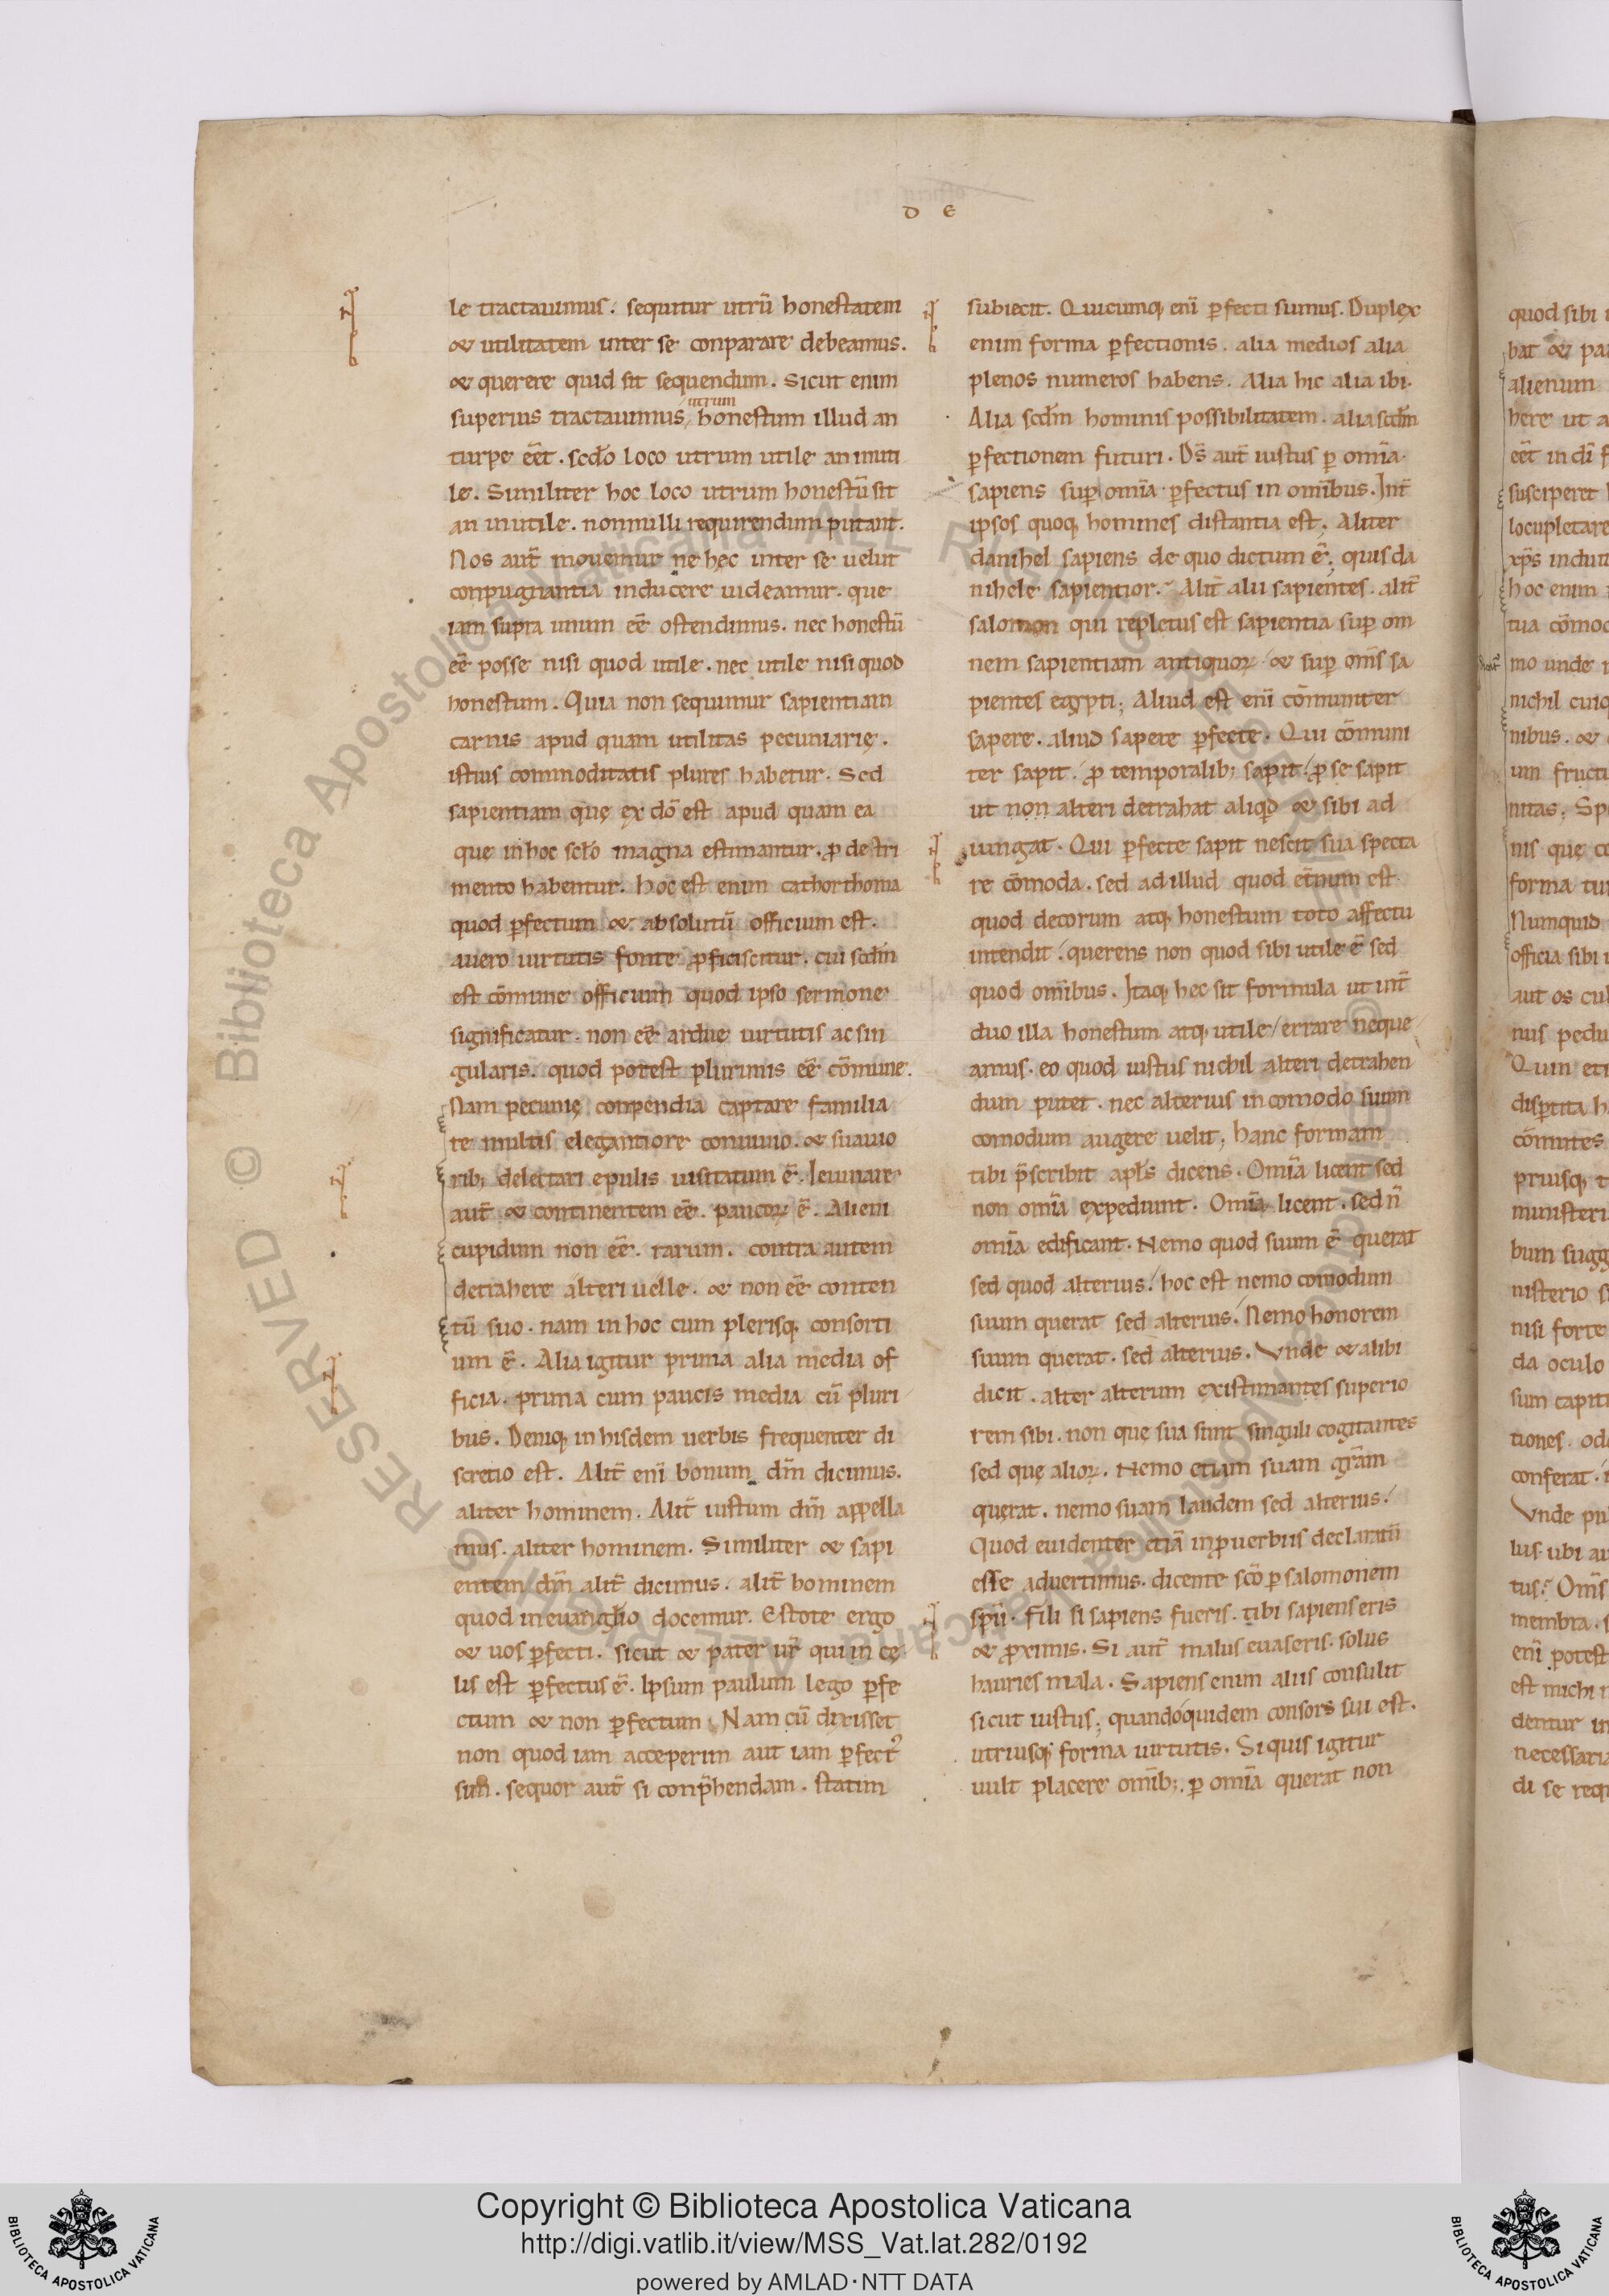 D E
le tractauimus. sequitur utrū honestatem
& utilitatem inter se conparare debeamus.
& querere quid sit sequendum. Sicut enim
utrum
superius tractauimus, honestum illud an
turpe eēt. scdo loco utrum utile an inuti
le. Similiter hoc loco utrum honestū sit
an inutile. nonnulli requirendum putant.
Nos aut̄ mouemur ne hęc inter se uelut
conpugnantia inducere uideamur. que
iam supra unum eē ostendimus. nec honestū
eē posse nisi quod utile. nec utile nisi quod
honestum. Quia non sequimur sapientiam
carnis apud quam utilitas pecuniarię.
istius commoditatis plures habetur. Sed
sapientiam quę ex dō est apud quam ea
que in hoc scło magna estimantur. ꝓ detri
mento habentur. Hoc est enim cathorthoma
quod ꝑfectum & absolutū officium est.
auero uirtutis fonte ꝓficiscitur. cui scdm
est cōmune officium quod ipso sermone
significatur. non eē arduę uirtutis ac sin
gularis. quod potest plurimis eē cōmune.
Nam pecunię conpendia captare familia
re multis elegantiore conuiuio. & suauio
rib; delectari epulis usitatum ē. Ieiunare
aut̄ & continentem eē. paucoꝝ ē. Alieni
cupidum non eē. rarum. contra autem
detrahere alteri uelle. & non eē conten
tū suo. nam in hoc cum plerisq; consorti
um ē. Alia igitur prima alia media of
ficia. prima cum paucis media cū pluri
bus. Deniq; in hisdem uerbis frequenter di
scretio est. Alit̄ enī bonum dm̄ dicimus.
aliter hominem. Alit̄ iustum dm̄ appella
mus. aliter hominem. Similiter & sapi
entem dm̄ alit̄ dicimus. alit̄ hominem
quod in euanglio docemur. Estote ergo
& uos ꝑfecti. sicut & pater ur̄ qui in cę
lis est ꝑfectus ē. Ipsum paulum lego ꝑfe
ctum & non ꝑfectum. Nam cū dixisset
non quod iam acceperim aut iam ꝑfect᾿
sum. sequor aut̄ si conp̄hendam. statim
subiecit. Quicumq; enī ꝑfecti sumus. Duplex
enim forma ꝑfectionis. alia medios alia
plenos numeros habens. Alia hic alia ibi.
Alia scdm hominis possibilitatem. alia scdm
ꝑfectionem futuri. Ds̄ aut̄ iustus ꝑ omīa.
sapiens suꝑ omīa ꝑfectus in omībus. Int̄
ipsos quoq; homines distantia est. Aliter
danihel sapiens de quo dictum ē; quis da
nihele sapientior. Alit̄ alii sapientes. alit̄
salomon qui repletus est sapientia suꝑ om
nem sapientiam antiquoꝝ & suꝑ om̄s sa
pientes egypti; Aliud est enī cōmuniter
sapere. aliud sapere ꝑfecte. Qui cōmuni
ter sapit. ꝓ temporalib; sapit. ꝓ se sapit
ut non alteri detrahat aliqd & sibi ad
iungat. Qui ꝑfecte sapit nescit sua specta
re cōmoda. sed ad illud quod et̄num est.
quod decorum atq; honestum toto affectu
intendit. querens non quod sibi utile ē sed
quod omībus. Itaq; hec sit formula ut int̄
duo illa honestum atq; utile errare neque
amus. eo quod iustus nichil alteri detrahen
dum putet. nec alterius incomodo suum
comodum augere uelit; hanc formam
tibi p̄scribit apłs dicens. Omīa licent sed
non omīa expediunt. Omīa licent. sed n̄
omīa edificant. Nemo quod suum ē querat
sed quod alterius. hoc est nemo comodum
suum querat sed alterius. Nemo honorem
suum querat. sed alterius. Vnde & alibi
dicit. alter alterum existimantes superio
rem sibi. non quę sua sunt singuli cogitantes
sed quę alioꝝ. Nemo etiam suam gr̄am
quęrat. nemo suam laudem sed alterius.
Quod euidenter etiā in ꝓuerbiis declaratū
esse aduertimus. dicente scō ꝑ salomonem
spū. Fili si sapiens fueris. tibi sapiens eris
& ꝓximis. Si aut̄ malus euaseris. solus
hauries mala. Sapiens enim aliis consulit
sicut iustus; quandoquidem consors sui est.
utriusq; forma uirtutis. Si quis igitur
uult placere omīb;. ꝑ omīa querat non
quod sibi
alienum
here ut a
suscipere
locupletare
hoc enim
mo unde
forma tu
Numquid
officia sibi
nus pedu
Quin eti
nisi forte
da oculo
sum capiti
conferat.
Vnde
membra.
enī potest
est michi
necessaria
Copyright © Biblioteca Apostolica Vaticana
http://digi.vatlib.it/view/MSS_Vat.lat.282/0192
powered by AMLAD·NTT DATA
BIBLIOTECA APOSTOLICA VATICANA
BIBLIOTECA APOSTOLICA VATICANA
© Biblioteca Apostolica Vaticana ALL RIGHTS RESERVED